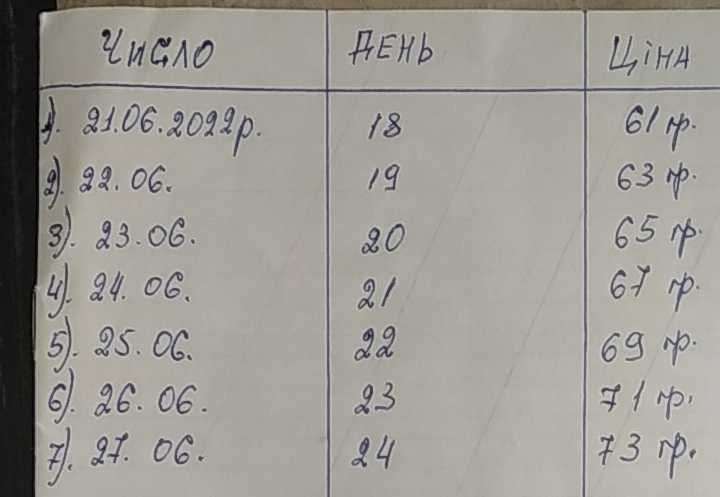 Число День Ціна
1). 21.06.2022р. 18 61 гр.
2). 22.06. 19 63 гр.
3). 23.06. 20 65 гр.
4). 24.06. 21 67 гр.
5). 25.06. 22 69 гр.
6). 26.06. 23 71 гр.
7). 27.06. 24 73 гр.